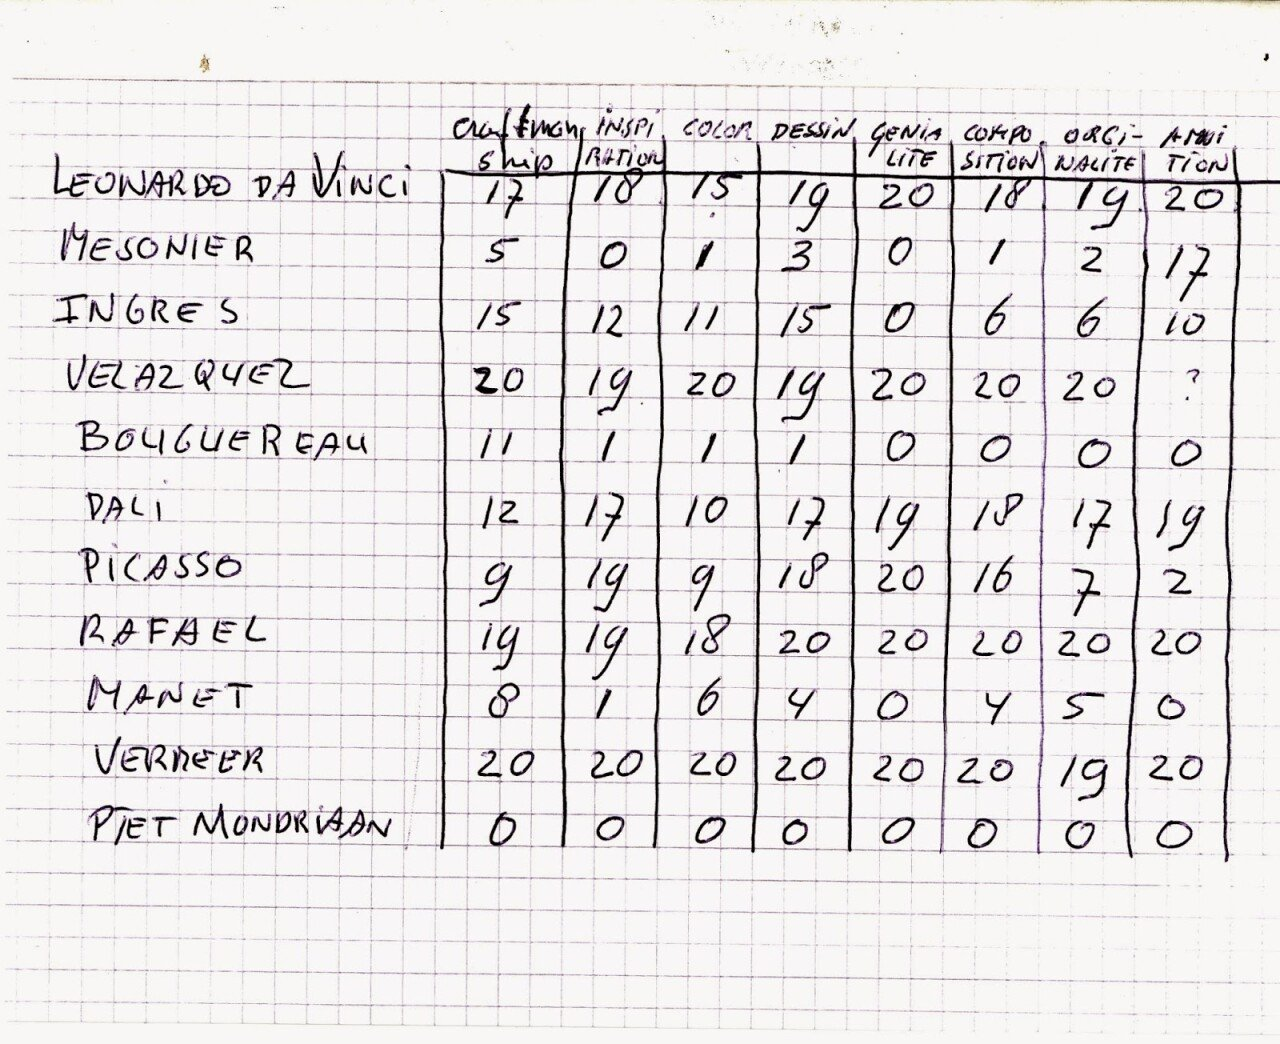 Craftman INSPI COLOR DESSIN GENIA COMPO ORGI- AMBI
Ship RATION LITE SITION NALITE TION
LEONARDO DA VINCI 17 18 15 19 20 18 19 20
MESONIER 5 0 1 3 0 1 2 17
INGRES 15 12 11 15 0 6 6 10
VELAZQUEZ 20 19 20 19 20 20 20 ?
BOUGUEREAU 11 1 1 1 0 0 0 0
DALI 12 17 10 17 19 18 17 19
PICASSO 9 19 9 18 20 16 7 2
RAFAEL 19 19 18 20 20 20 20 20
MANET 8 1 6 4 0 4 5 0
VERMEER 20 20 20 20 20 20 19 20
PIET MONDRIAAN 0 0 0 0 0 0 0 0